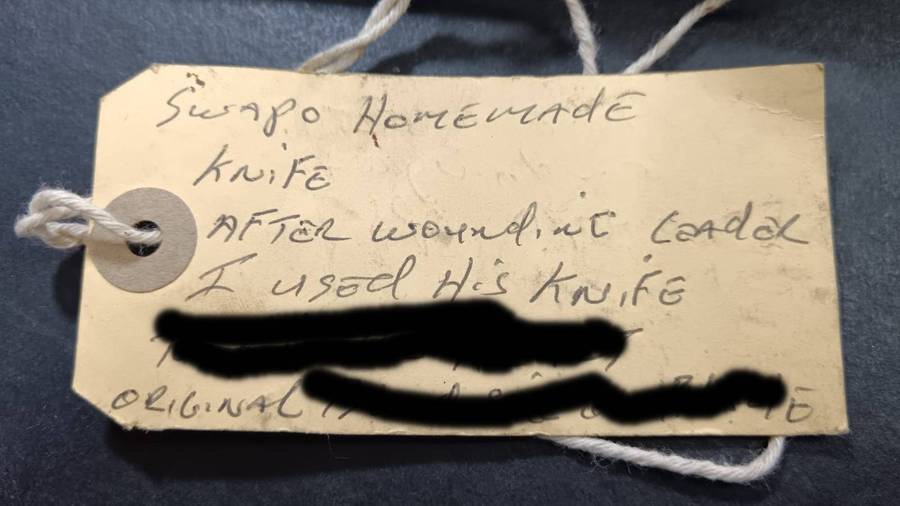 SWAPO HOMEMADE
KNIFE
AFTER WOUNDING LEADER
I USED HIS KNIFE
ORIGINAL